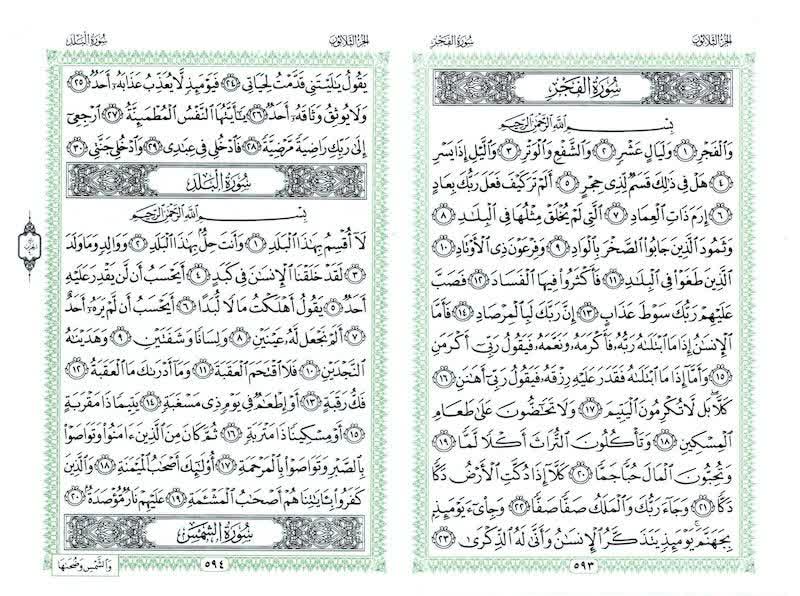 سُورَةُ الفَجْرِ الجُزْءُ الثَّلَاثُونَ
سُورَةُ الفَجْرِ
بِسْمِ ٱللَّهِ ٱلرَّحْمَٰنِ ٱلرَّحِيمِ
وَٱلْفَجْرِ ١ وَلَيَالٍ عَشْرٍ ٢ وَٱلشَّفْعِ وَٱلْوَتْرِ ٣ وَٱلَّيْلِ إِذَا يَسْرِ
٤ هَلْ فِي ذَٰلِكَ قَسَمٌ لِّذِي حِجْرٍ ٥ أَلَمْ تَرَ كَيْفَ فَعَلَ رَبُّكَ بِعَادٍ
٦ إِرَمَ ذَاتِ ٱلْعِمَادِ ٧ ٱلَّتِي لَمْ يُخْلَقْ مِثْلُهَا فِي ٱلْبِلَٰدِ ٨
وَثَمُودَ ٱلَّذِينَ جَابُوا۟ ٱلصَّخْرَ بِٱلْوَادِ ٩ وَفِرْعَوْنَ ذِي ٱلْأَوْتَادِ ١٠
ٱلَّذِينَ طَغَوْا۟ فِي ٱلْبِلَٰدِ ١١ فَأَكْثَرُوا۟ فِيهَا ٱلْفَسَادَ ١٢ فَصَبَّ
عَلَيْهِمْ رَبُّكَ سَوْطَ عَذَابٍ ١٣ إِنَّ رَبَّكَ لَبِٱلْمِرْصَادِ ١٤ فَأَمَّا
ٱلْإِنسَٰنُ إِذَا مَا ٱبْتَلَىٰهُ رَبُّهُۥ فَأَكْرَمَهُۥ وَنَعَّمَهُۥ فَيَقُولُ رَبِّىٓ أَكْرَمَنِ
١٥ وَأَمَّآ إِذَا مَا ٱبْتَلَىٰهُ فَقَدَرَ عَلَيْهِ رِزْقَهُۥ فَيَقُولُ رَبِّىٓ أَهَٰنَنِ ١٦
كَلَّا ۖ بَل لَّا تُكْرِمُونَ ٱلْيَتِيمَ ١٧ وَلَا تَحَٰٓضُّونَ عَلَىٰ طَعَامِ
ٱلْمِسْكِينِ ١٨ وَتَأْكُلُونَ ٱلتُّرَاثَ أَكْلًا لَّمًّا ١٩
وَتُحِبُّونَ ٱلْمَالَ حُبًّا جَمًّا ٢٠ كَلَّآ إِذَا دُكَّتِ ٱلْأَرْضُ دَكًّا
دَكًّا ٢١ وَجَآءَ رَبُّكَ وَٱلْمَلَكُ صَفًّا صَفًّا ٢٢ وَجِا۟ىٓءَ يَوْمَئِذٍۭ
بِجَهَنَّمَ ۚ يَوْمَئِذٍ يَتَذَكَّرُ ٱلْإِنسَٰنُ وَأَنَّىٰ لَهُ ٱلذِّكْرَىٰ ٢٣
٥٩٣
سُورَةُ البَلَدِ الجُزْءُ الثَّلَاثُونَ
يَقُولُ يَٰلَيْتَنِي قَدَّمْتُ لِحَيَاتِي ٢٤ فَيَوْمَئِذٍ لَّا يُعَذِّبُ عَذَابَهُۥٓ أَحَدٌ ٢٥
وَلَا يُوثِقُ وَثَاقَهُۥٓ أَحَدٌ ٢٦ يَٰٓأَيَّتُهَا ٱلنَّفْسُ ٱلْمُطْمَئِنَّةُ ٢٧ ٱرْجِعِىٓ
إِلَىٰ رَبِّكِ رَاضِيَةً مَّرْضِيَّةً ٢٨ فَٱدْخُلِي فِي عِبَٰدِي ٢٩ وَٱدْخُلِي جَنَّتِي ٣٠
سُورَةُ البَلَدِ
بِسْمِ ٱللَّهِ ٱلرَّحْمَٰنِ ٱلرَّحِيمِ
لَآ أُقْسِمُ بِهَٰذَا ٱلْبَلَدِ ١ وَأَنتَ حِلٌّۢ بِهَٰذَا ٱلْبَلَدِ ٢ وَوَالِدٍ وَمَا وَلَدَ
٣ لَقَدْ خَلَقْنَا ٱلْإِنسَٰنَ فِي كَبَدٍ ٤ أَيَحْسَبُ أَن لَّن يَقْدِرَ عَلَيْهِ
أَحَدٌ ٥ يَقُولُ أَهْلَكْتُ مَالًا لُّبَدًا ٦ أَيَحْسَبُ أَن لَّمْ يَرَهُۥٓ أَحَدٌ
٧ أَلَمْ نَجْعَل لَّهُۥ عَيْنَيْنِ ٨ وَلِسَانًا وَشَفَتَيْنِ ٩ وَهَدَيْنَٰهُ
ٱلنَّجْدَيْنِ ١٠ فَلَا ٱقْتَحَمَ ٱلْعَقَبَةَ ١١ وَمَآ أَدْرَىٰكَ مَا ٱلْعَقَبَةُ ١٢
فَكُّ رَقَبَةٍ ١٣ أَوْ إِطْعَٰمٌ فِي يَوْمٍ ذِي مَسْغَبَةٍ ١٤ يَتِيمًا ذَا مَقْرَبَةٍ
١٥ أَوْ مِسْكِينًا ذَا مَتْرَبَةٍ ١٦ ثُمَّ كَانَ مِنَ ٱلَّذِينَ ءَامَنُوا۟ وَتَوَاصَوْا۟
بِٱلصَّبْرِ وَتَوَاصَوْا۟ بِٱلْمَرْحَمَةِ ١٧ أُو۟لَٰٓئِكَ أَصْحَٰبُ ٱلْمَيْمَنَةِ ١٨ وَٱلَّذِينَ
كَفَرُوا۟ بِـَٔايَٰتِنَا هُمْ أَصْحَٰبُ ٱلْمَشْـَٔمَةِ ١٩ عَلَيْهِمْ نَارٌ مُّؤْصَدَةٌۢ ٢٠
سُورَةُ الشَّمْسِ
وَالشَّمْسِ وَضُحَىٰهَا
٥٩٤